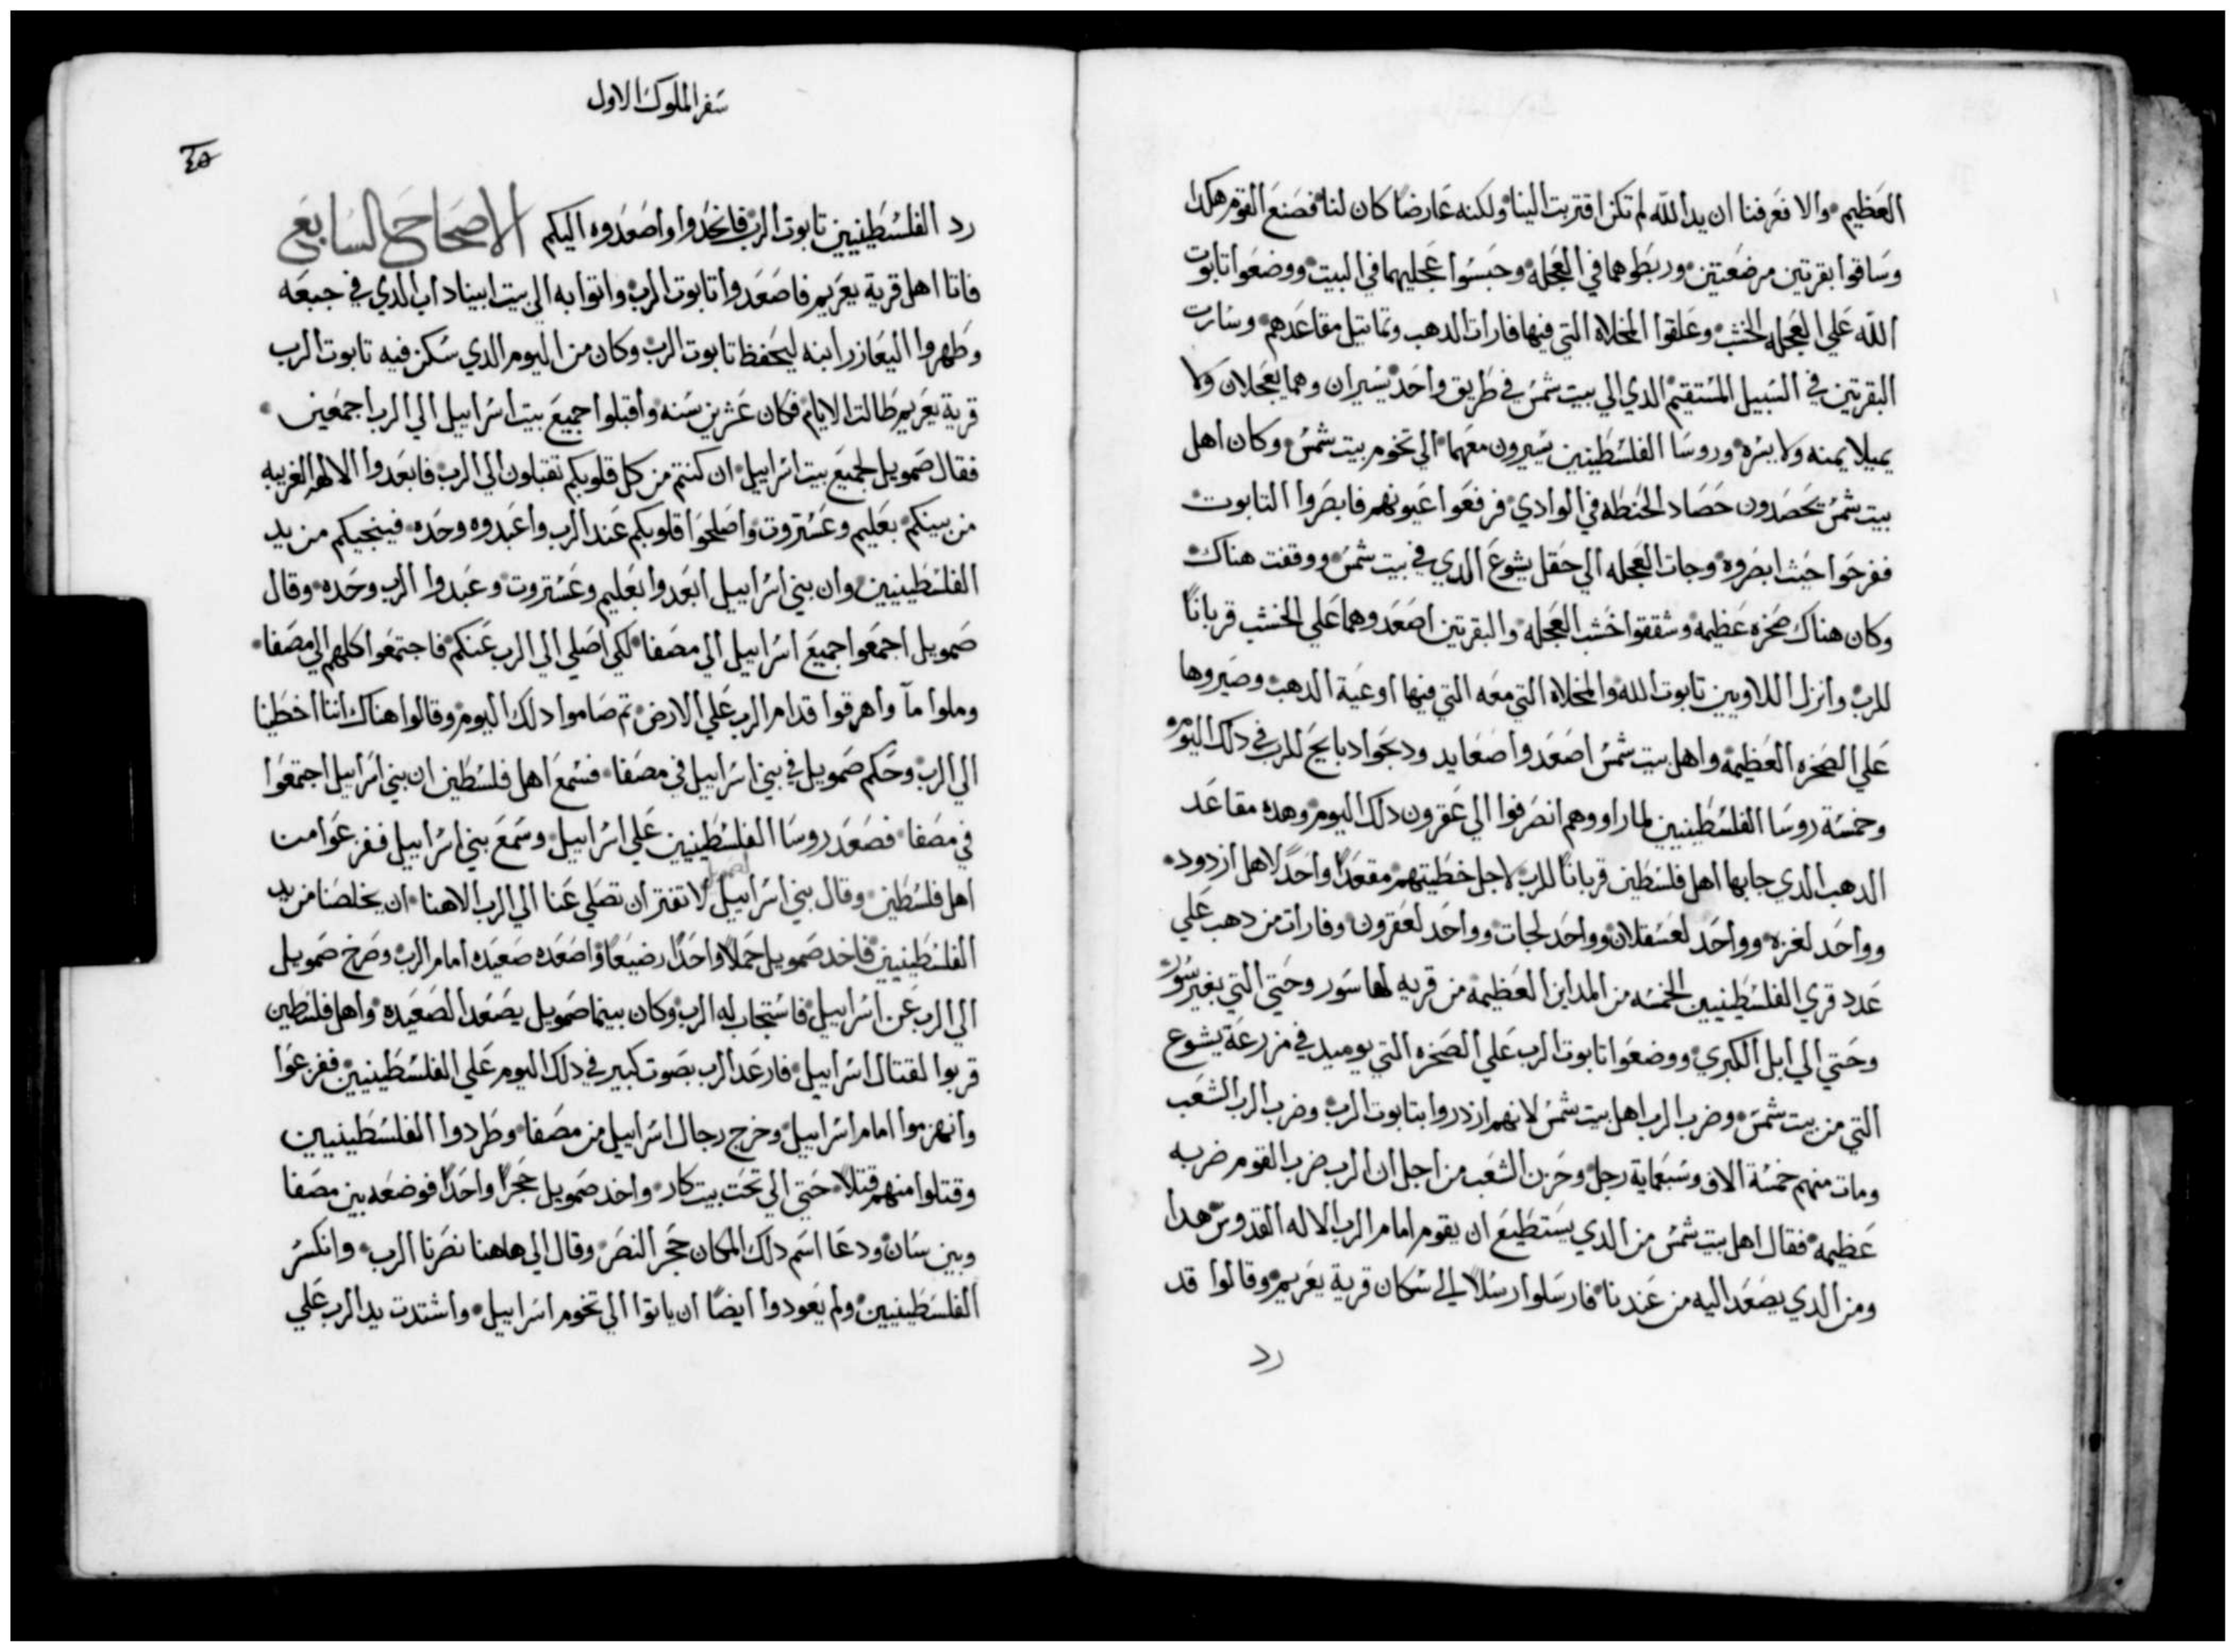 العظيم والا نعرفنا ان يد الله لم تكن اقتربت الينا ولكنه عارضا كان لنا فصنع القوم هكدا
وساقوا بقرتين مرضعتين وربطوهما في العجله وحبسوا عجليهما في البيت ووضعوا تابوت
الله علي العجله الخشب وعلقوا المخلاه التي فيها فارات الدهب وتماتيل مقاعدهم وسارت
البقرتين في السبيل المستقيم الدي الي بيت شمس في طريق واحد يسيران وهما يعجلان ولا
يميلا يمنه ولا يسره وروسا الفلسطينين يسيرون معهما الي تخوم بيت شمس وكان اهل
بيت شمس يحصدون حصاد الحنطه في الوادي فرفعوا عيونهم فابصروا التابوت
ففرحوا حيث ابصروه وجات العجله الي حقل يشوع الدي في بيت شمس ووقفت هناك
وكان هناك صخره عظيمه وشققوا خشب العجله والبقرتين اصعدوهما علي الخشب قربانا
للرب وانزل اللاويين تابوت الله والمخلاه التي معه التي فيها اوعية الدهب وصيروها
علي الصخره العظيمه واهل بيت شمس اصعدوا صعايد ودبحوا دبايح للرب في دلك اليوم
وخمسة روسا الفلسطينيين لما راووهم انصرفوا الي عقرون دلك اليوم وهده مقاعد
الدهب الدي جابها اهل فلسطين قربانا للرب لاجل خطيتهم مقعدا واحدا لاهل ازدود
وواحد لغزه وواحد لعسقلان وواحد لجات وواحد لعقرون وفارات من دهب علي
عدد قري الفلسطينيين الخمسه من المداين العظيمه من قريه لها سور وحتي التي بغير سور
وحتي الي ابل الكبري ووضعوا تابوت الرب علي الصخره التي يوميد في مزرعة يشوع
التي من بيت شمس وضرب الرب اهل بيت شمس لانهم ازدروا بتابوت الرب وضرب الرب الشعب
ومات منهم خمسة الاف وسبعماية رجل وحزن الشعب من اجل ان الرب ضرب القوم ضربه
عظيمه فقال اهل بيت شمس من الدي يستطيع ان يقوم امام الرب الاله القدوس هدا
ومن الدي يصعد اليه من عندنا فارسلوا رسلا الي سكان قرية يعريم وقالوا قد
رد
سفر الملوك الاول
٤٥
رد الفلسطينيين تابوت الرب فانحدروا واصعدوه اليكم الاصحاح السابع
فاتا اهل قرية يعريم فاصعدوا تابوت الرب واتوا به الي بيت ابيناداب الدي في جبعه
وطهروا اليعازر ابنه ليحفظ تابوت الرب وكان من اليوم الدي سكن فيه تابوت الرب
قرية يعريم طالت الايام فكان عشرين سنه واقبلوا جميع بيت اسراييل الي الرب اجمعين
فقال صمويل لجميع بيت اسراييل ان كنتم من كل قلوبكم تقبلون الي الرب فابعدوا الالهه الغريبه
من بينكم بعليم وعستروت واصلحوا قلوبكم عند الرب واعبدوه وحده فينجيكم من يد
الفلسطينيين وان بني اسراييل ابعدوا بعليم وعستروت وعبدوا الرب وحده وقال
صمويل اجمعوا جميع اسراييل الي مصفا لكي اصلي الي الرب عنكم فاجتمعوا كلهم الي مصفا
وملوا مآ واهرقوا قدام الرب علي الارض تم صاموا دلك اليوم وقالوا هناك اننا اخطينا
الي الرب وحكم صمويل في بني اسراييل في مصفا فسمع اهل فلسطين ان بني اسراييل اجتمعوا
في مصفا فصعد روسا الفلسطينيين علي اسراييل وسمع بني اسراييل ففزعوا من
اهل فلسطين وقال بني اسراييل لا تفتر ان تصلي عنا الي الرب الاهنا ان يخلصنا من يد
الفلسطينيين فاخد صمويل حملا واحدا رضيعا واصعده صعيده امام الرب وصرخ صمويل
الي الرب عن اسراييل فاستجاب له الرب وكان بينما صمويل يصعد الصعيده واهل فلسطين
قربوا لقتال اسراييل فارعد الرب بصوت كبير في دلك اليوم علي الفلسطينيين ففزعوا
وانهزموا امام اسراييل وخرج رجال اسراييل من مصفا وطردوا الفلسطينيين
وقتلوا منهم قتلا حتي الي تحت بيت كار واخد صمويل حجرا واحدا فوضعه بين مصفا
وبين سان ودعا اسم دلك المكان حجر النصر وقال الي هاهنا نصرنا الرب وانكسر
الفلسطينيين ولم يعودوا ايضا ان ياتوا الي تخوم اسراييل واشتدت يد الرب علي